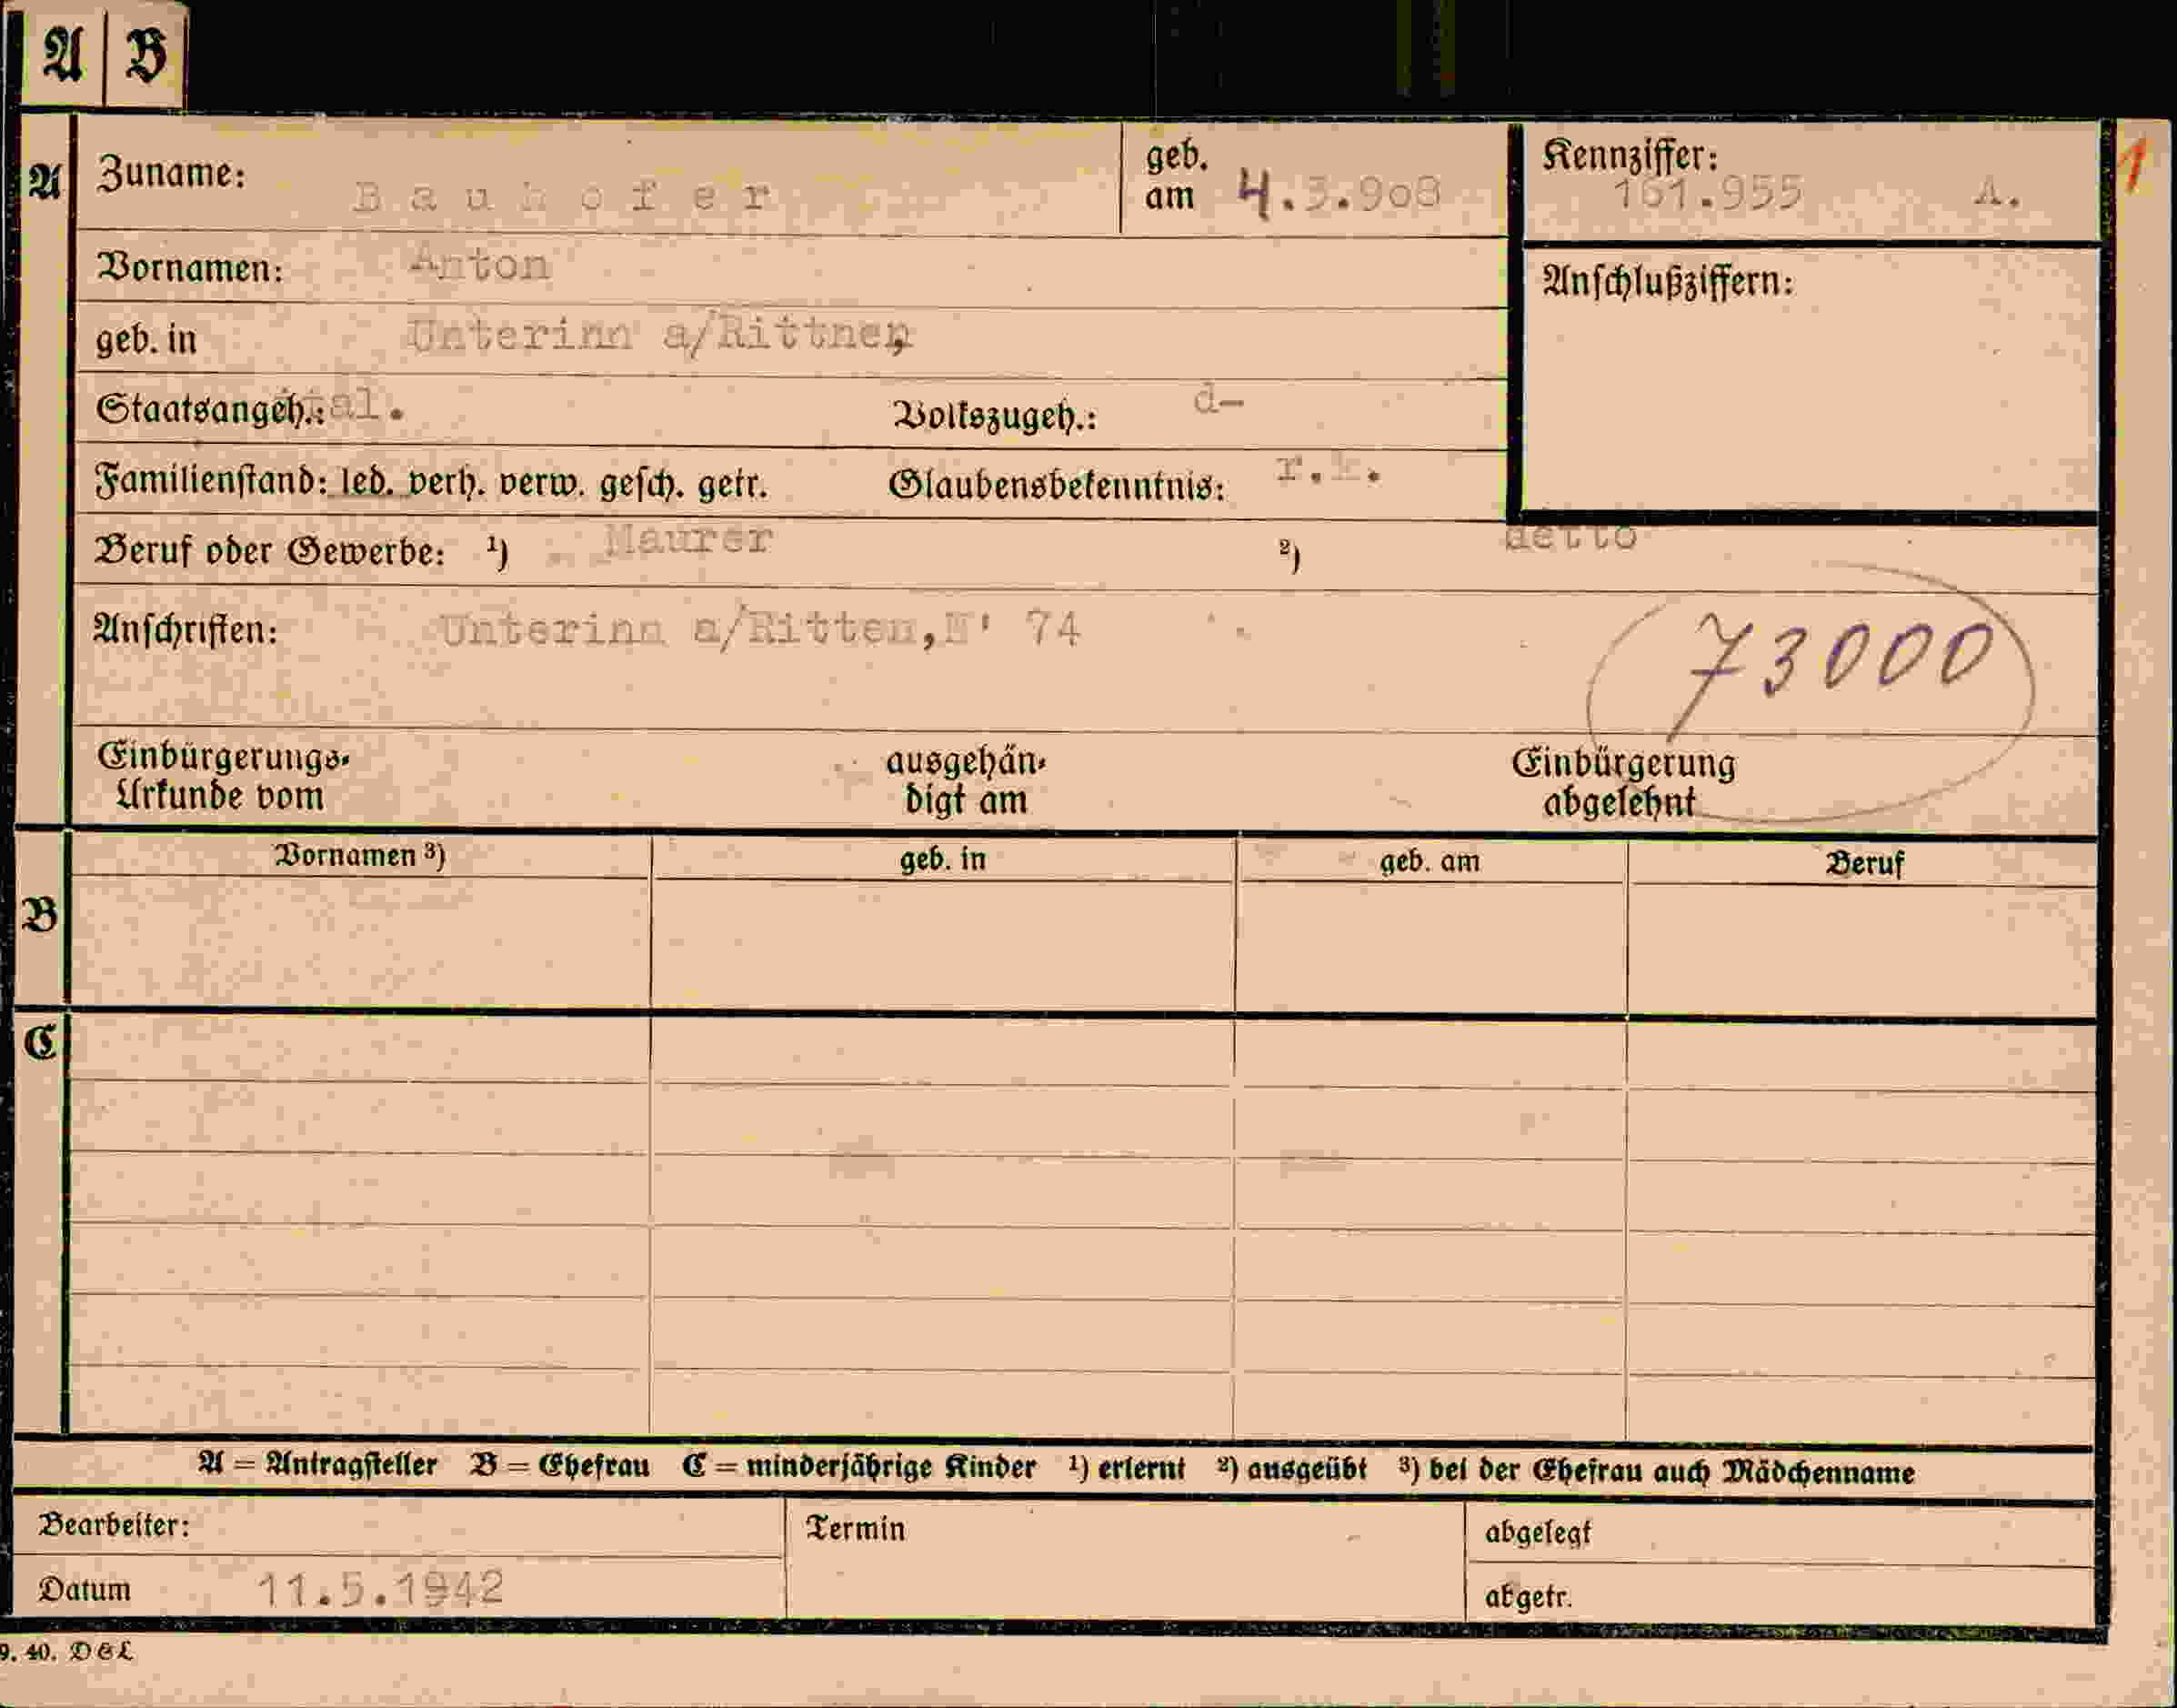 A B
A
Zuname: Bauhofer geb. am 4.3.908 Kennziffer: 161.955 A. 1
Vornamen: Anton
Anschlußziffern:
geb. in Unterinn a/Rittner
Staatsangeh.: ital. Volkszugeh.: d-
Familienstand: led. verh. verw. gesch. getr. Glaubensbekenntnis: r.k.
Beruf oder Gewerbe: ¹) Maurer ²) detto
Anschriften: Unterinn a/Ritten, N' 74
73000
Einbürgerungs-Urkunde vom ausgehändigt am Einbürgerung abgelehnt
B
Vornamen ³) geb. in geb. am Beruf
C
A = Antragsteller B = Ehefrau C = minderjährige Kinder ¹) erlernt ²) ausgeübt ³) bei der Ehefrau auch Mädchenname
Bearbeiter: Termin abgelegt
Datum 11.5.1942 abgetr.
9. 40. DGL